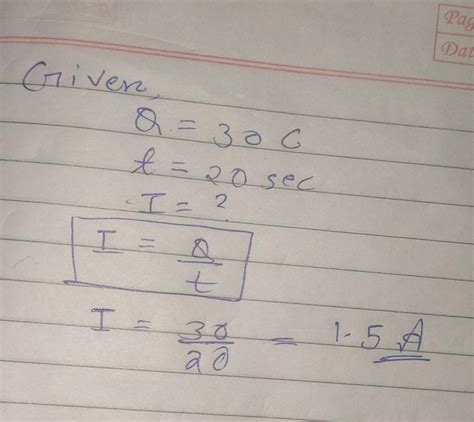 Pag
Dat
Given,
Q = 30 C
t = 20 sec
I = ?
I = Q/t
I = 30/20 = 1.5 A